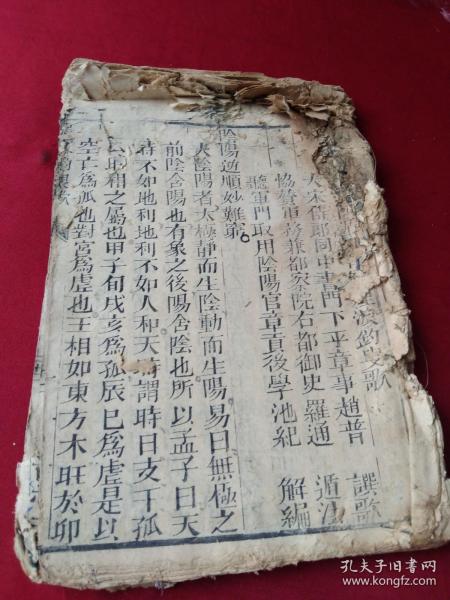 波釣叟歌
大宋侍郎同中書門下平章事趙普 譔歌
協贊軍務兼都察院右都御史羅通 遁法
聽軍門取用陰陽官章貢後學池紀 解編
陰陽逆順妙難窮。
夫陰陽者太極靜而生陰動而生陽易曰無極之
前陰含陽也有象之後陽含陰也所以孟子曰天
時不如地利地利不如人和天時謂時日支干孤
虛旺相之屬也甲子旬戌亥爲孤辰巳爲虛是以
空亡爲孤也對宮爲虛也王相如東方木旺於卯
孔夫子旧书网
www.kongfz.com